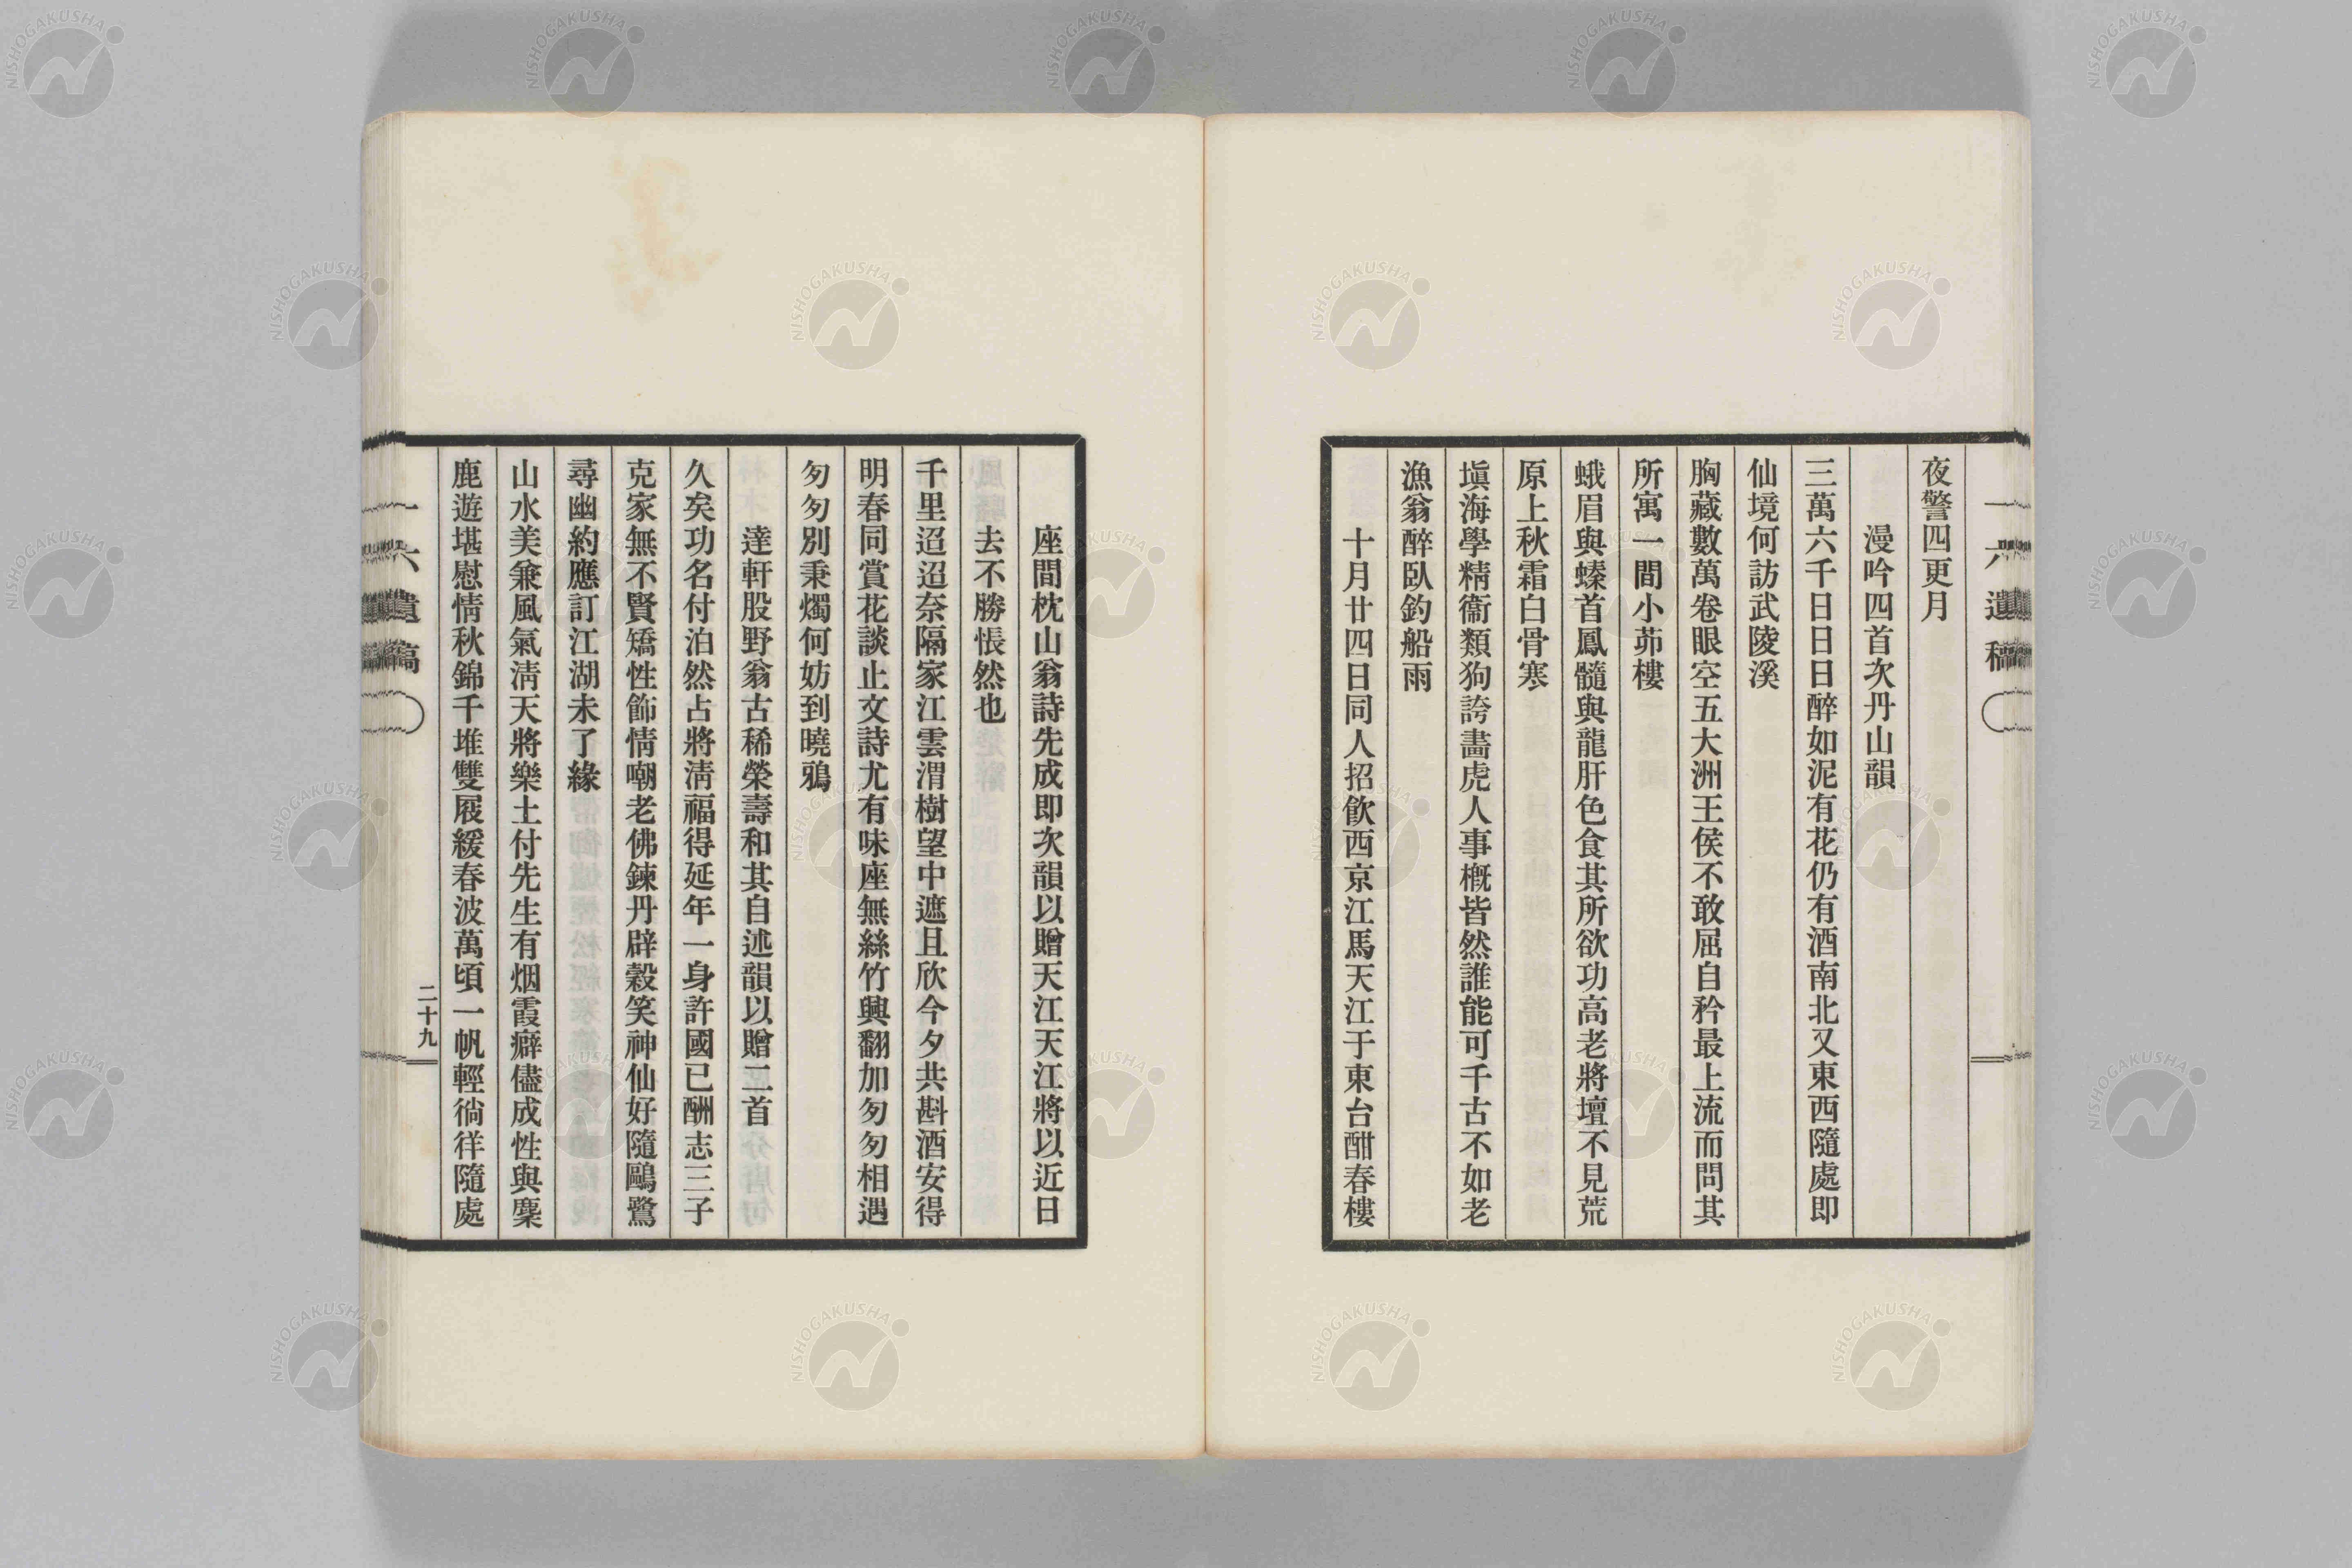 夜警四更月
漫吟四首次丹山韻
三萬六千日日日醉如泥有花仍有酒南北又東西隨處即
仙境何訪武陵溪
胸藏數萬卷眼空五大洲王侯不敢屈自矜最上流而問其
所寓一間小茆樓
蛾眉與螓首鳳髓與龍肝色食其所欲功高老將壇不見荒
原上秋霜白骨寒
塡海學精衞類狗誇畵虎人事槪皆然誰能可千古不如老
漁翁醉臥釣船雨
十月廿四日同人招飮西京江馬天江于東台酣春樓
座間枕山翁詩先成即次韻以贈天江天江將以近日
去不勝悵然也
千里迢迢奈隔家江雲渭樹望中遮且欣今夕共斟酒安得
明春同賞花談止文詩尤有味座無絲竹興翻加匆匆相遇
匆匆別秉燭何妨到曉鴉
達軒股野翁古稀榮壽和其自述韻以贈二首
久矣功名付泊然占將淸福得延年一身許國已酬志三子
克家無不賢矯性飾情嘲老佛鍊丹辟穀笑神仙好隨鷗鷺
尋幽約應訂江湖未了緣
山水美兼風氣淸天將樂土付先生有烟霞癖儘成性與麋
鹿遊堪慰情秋錦千堆雙屐緩春波萬頃一帆輕徜徉隨處
一六遺稿
二十九
一六遺稿
NISHOGAKUSHA